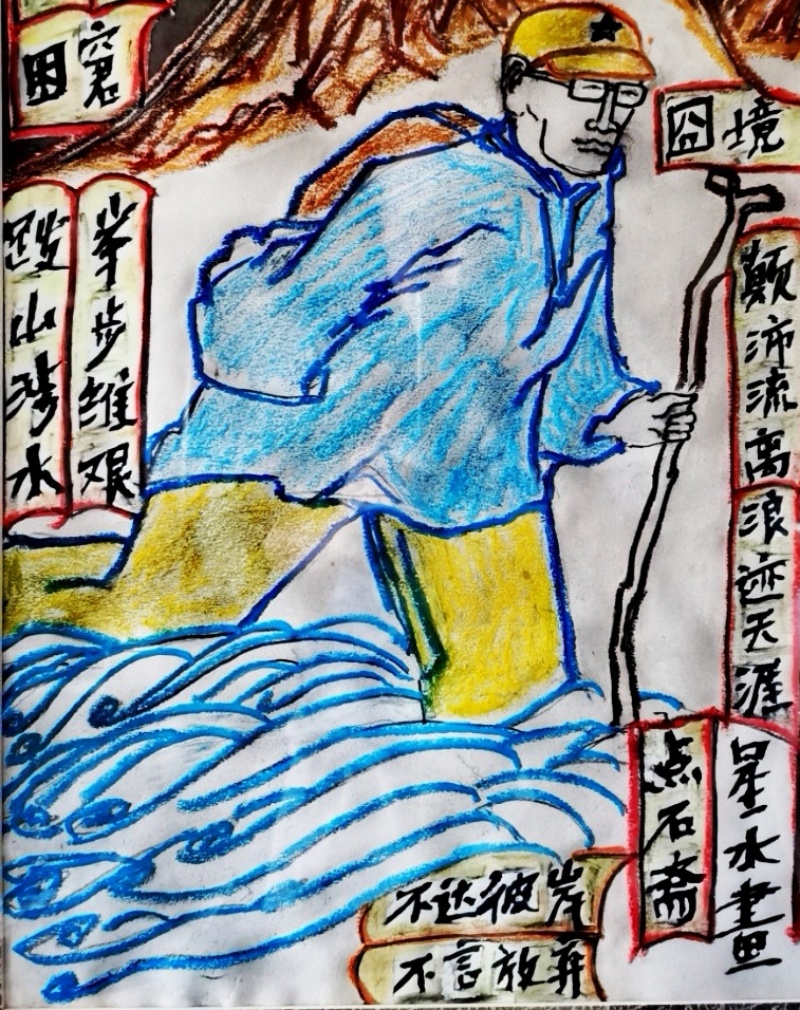 困窘
囧境
跋山涉水
举步维艰
颠沛流离
浪迹天涯
点石斋
星水畫
不达彼岸
不言放弃